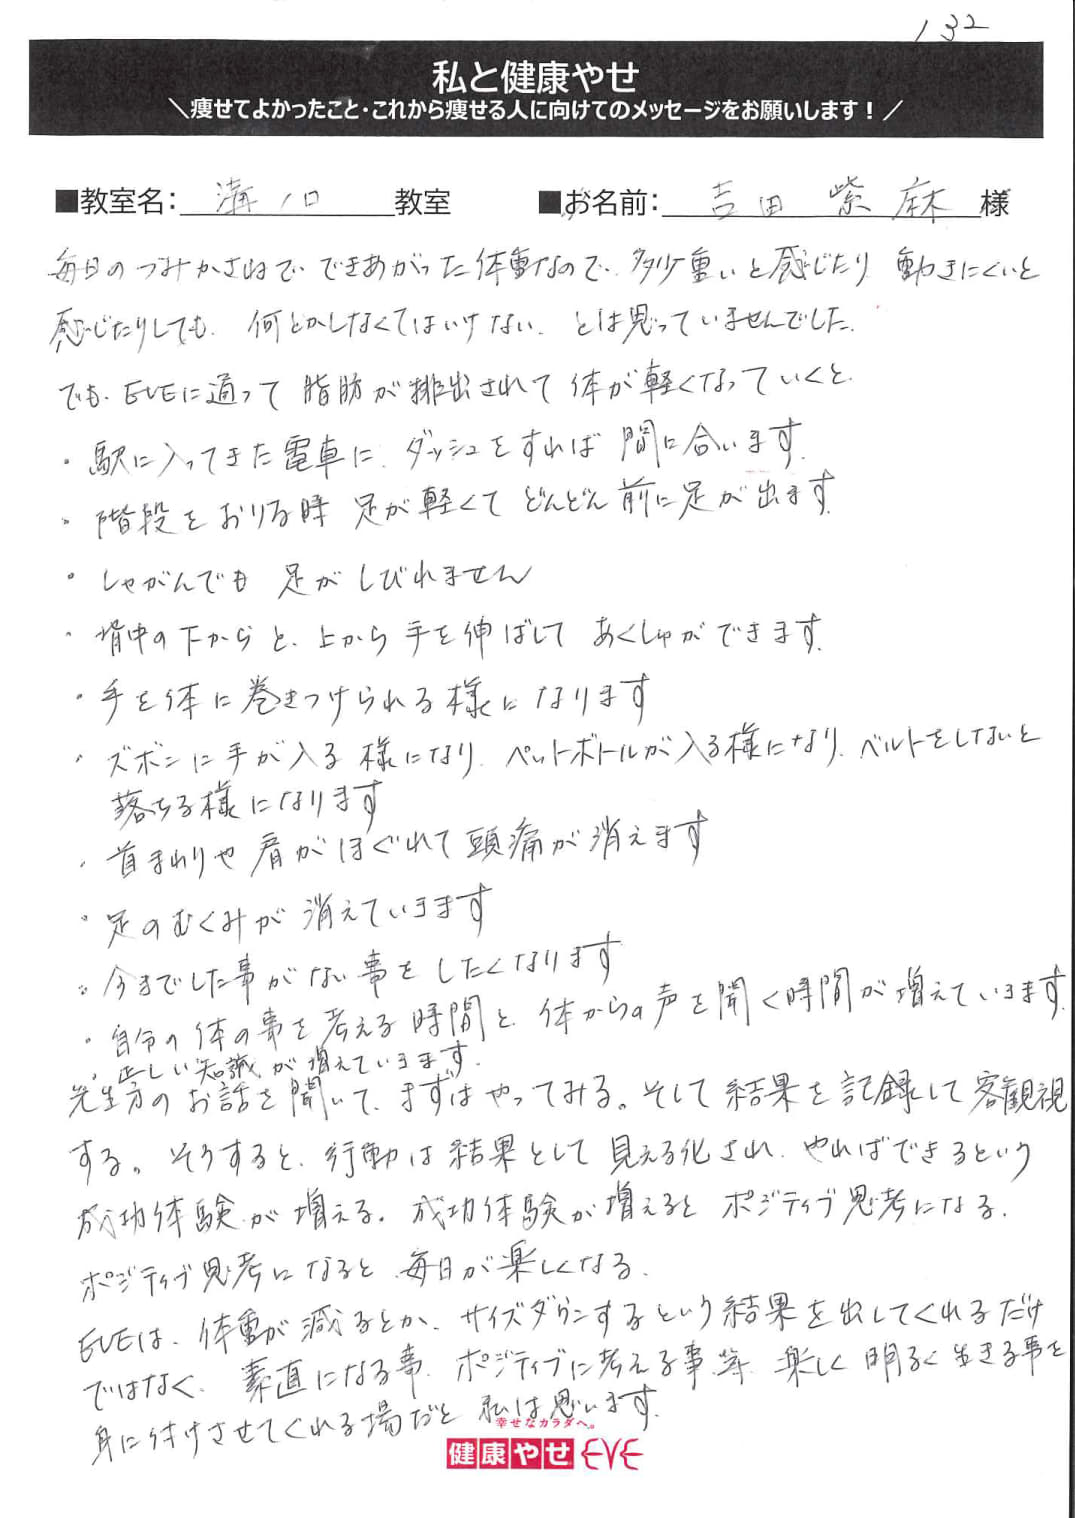 132
私と健康やせ
＼痩せてよかったこと・これから痩せる人に向けてのメッセージをお願いします！／
■教室名：溝ノ口教室　■お名前：吉田 紫麻様
毎日のつみかさねで、できあがった体重なので、多少重いと感じたり 動きにくいと
感じたりしても、何とかしなくてはいけない、とは思っていませんでした。
でも、EVEに通って 脂肪が排出されて 体が軽くなっていくと、
・駅に入ってきた電車に、ダッシュをすれば 間に合います。
・階段をおりる時 足が軽くて どんどん前に足が出ます。
・しゃがんでも 足がしびれません
・背中の下からと、上から 手を伸ばして あくしゅができます。
・手を体に巻きつけられる様になります
・ズボンに手が入る様になり、ペットボトルが入る様になり、ベルトをしないと
落ちる様になります
・首まわりや肩がほぐれて頭痛が消えます
・足のむくみが消えていきます
・今までした事がない事をしたくなります
・自分の体の事を考える時間と、体からの声を聞く時間が増えていきます。
・正しい知識が増えていきます。
先生方のお話を聞いて、まずはやってみる。そして結果を記録して客観視
する。そうすると、行動は結果として見える化され、やればできるという
成功体験が増える。成功体験が増えると ポジティブ思考になる。
ポジティブ思考になると、毎日が楽しくなる。
EVEは、体重が減るとか、サイズダウンするという結果を出してくれるだけ
ではなく、素直になる事、ポジティブに考える事等、楽しく明るく生きる事を
身に付けさせてくれる場だと 私は思います。
幸せなカラダへ。
健康やせ EVE